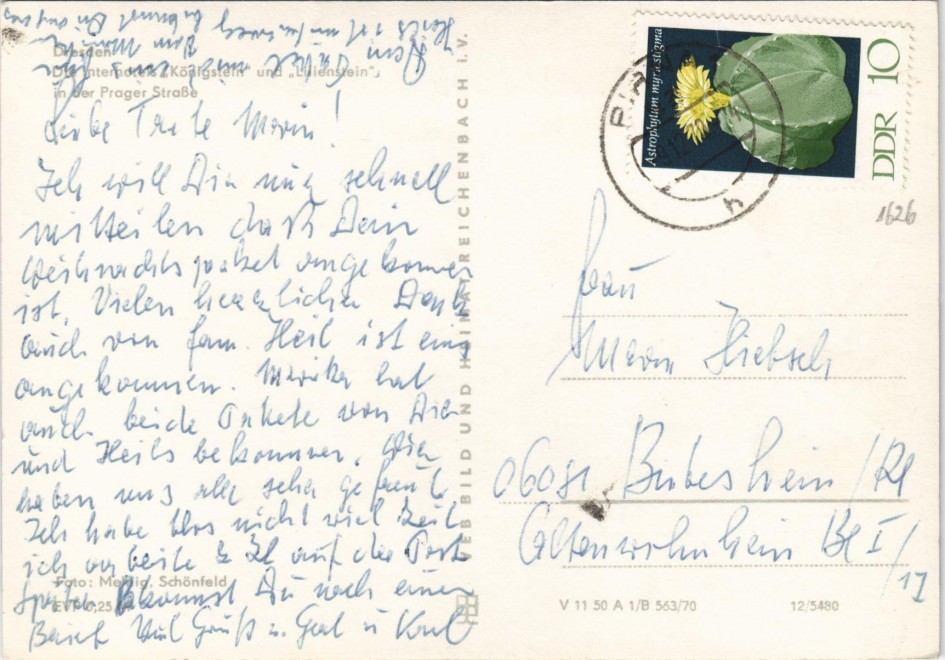 Dresden
Die Interhotels „Königstein" und „Lilienstein"
in der Prager Straße
Liebe Tante Marin!
Ich will Dir nur schnell
mitteilen dass Dein
Weihnachtspaket angekommen
ist, Vielen herzlichen Dank
auch von Fam. Heil ist eins
angekommen. Marika hat
auch beide Pakete von Dir
und Heils bekommen. Wir
haben uns alle sehr gefreut.
Ich habe blos nicht viel Zeit
ich arbeite z Zt auf der Post
später bekommst Du noch einen
Brief Viel Grüß u. u Karl
Foto: Schönfeld
EVP 0,25
VEB BILD UND HEIMAT REICHENBACH i. V.
Astrophytum myriostigma
DDR 10
1626
Frau
Marin Hiebsch
Bubesheim
Altenwohnheim Bl I/
V 11 50 A 1/B 563/70
12/5480